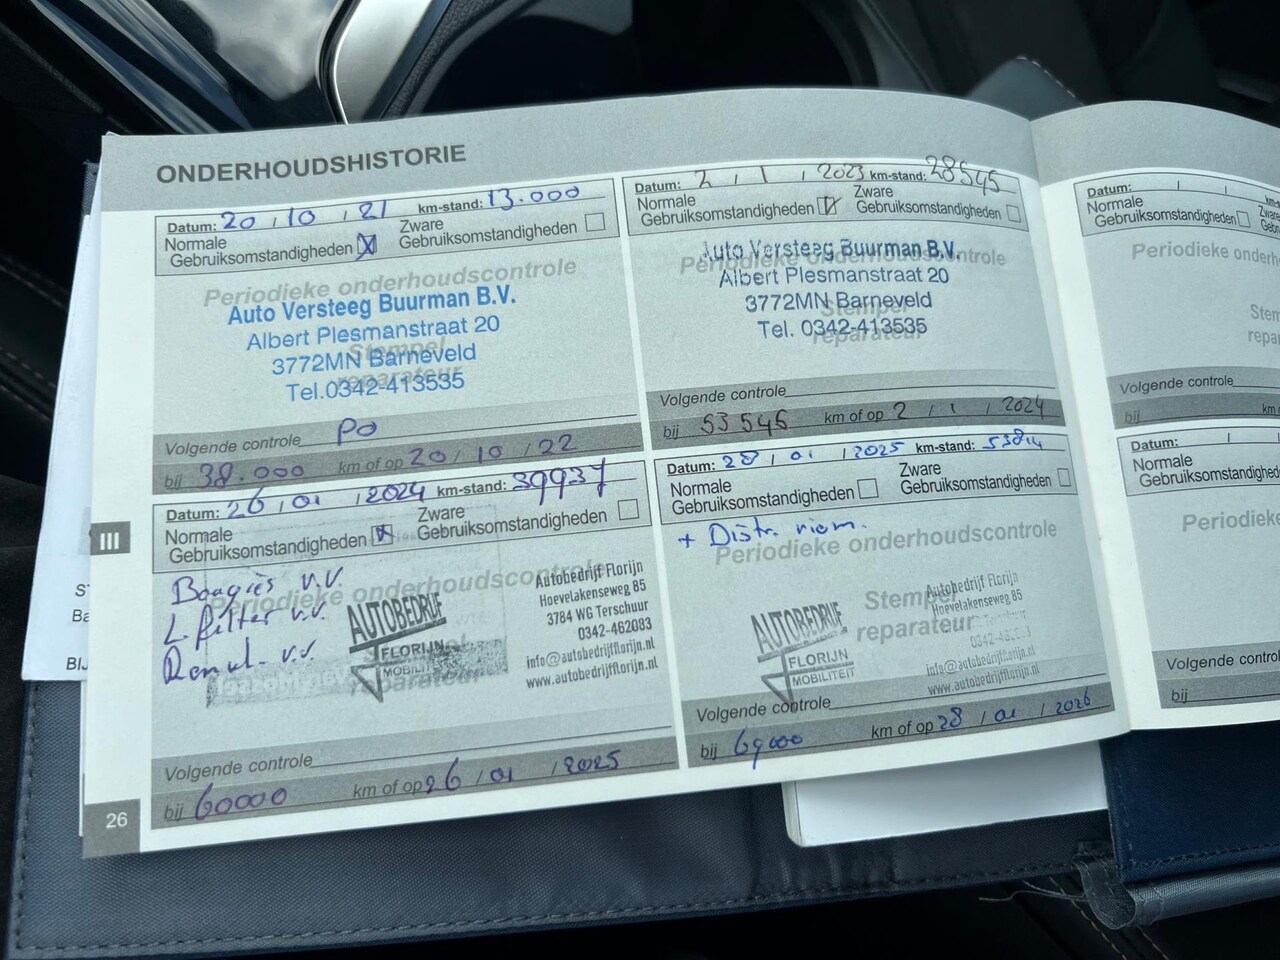 ONDERHOUDSHISTORIE
Datum: 20 / 10 / 21 km-stand: 13.000
Normale Gebruiksomstandigheden
Zware Gebruiksomstandigheden
Periodieke onderhoudscontrole
Auto Versteeg Buurman B.V.
Albert Plesmanstraat 20
Stempel
3772MN Barneveld
reparateur
Tel.0342-413535
Volgende controle PO
bij 38.000 km of op 20 / 10 / 22
Datum: 2 / 1 / 2023 km-stand: 28545
Normale Gebruiksomstandigheden
Zware Gebruiksomstandigheden
Auto Versteeg Buurman B.V.
Periodieke onderhoudscontrole
Albert Plesmanstraat 20
3772MN Barneveld
Stempel
Tel. 0342-413535
reparateur
Volgende controle
bij 53545 km of op 2 / 1 / 2024
Datum: 26 / 01 / 2024 km-stand: 39937
Normale Gebruiksomstandigheden
Zware Gebruiksomstandigheden
Periodieke onderhoudscontrole
Bougies v.v.
L filter v.v.
Remvl. v.v.
AUTOBEDRIJF
FLORIJN
MOBILITEIT
reparateur
Autobedrijf Florijn
Hoevelakenseweg 85
3784 WG Terschuur
0342-462083
info@autobedrijfflorijn.nl
www.autobedrijfflorijn.nl
Volgende controle
bij 60000 km of op 26 / 01 / 2025
Datum: 28 / 01 / 2025 km-stand: 53814
Normale Gebruiksomstandigheden
Zware Gebruiksomstandigheden
+ Distr. riem.
Periodieke onderhoudscontrole
Stempel
reparateur
AUTOBEDRIJF
FLORIJN
MOBILITEIT
Autobedrijf Florijn
Hoevelakenseweg 85
info@autobedrijfflorijn.nl
www.autobedrijfflorijn.nl
Volgende controle
bij 69000 km of op 28 / 01 / 2026
III
26
Datum: / /
Normale
Gebruiksomstandigheden
Periodieke onderh
Stem
repara
Volgende controle
bij
Datum: / /
Normale
Gebruiksomstandigheden
Periodieke
Volgende control
bij
ST
Ba
BIJ